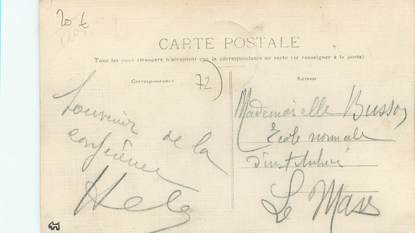 20 €
CARTE POSTALE
Tous les pays étrangers n'acceptent pas la correspondance au recto (se renseigner à la poste)
Correspondance
72
Adresse
Souvenir
de la
conférence
Mademoiselle Busson
Ecole normale
d'institutrices
Le Mans